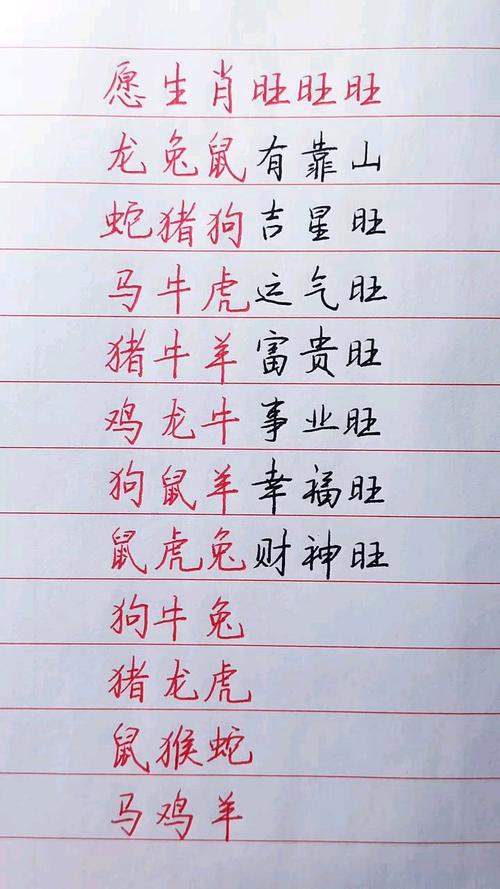 愿生肖旺旺旺
龙兔鼠有靠山
蛇猪狗吉星旺
马牛虎运气旺
猪牛羊富贵旺
鸡龙牛事业旺
狗鼠羊幸福旺
鼠虎兔财神旺
狗牛兔
猪龙虎
鼠猴蛇
马鸡羊